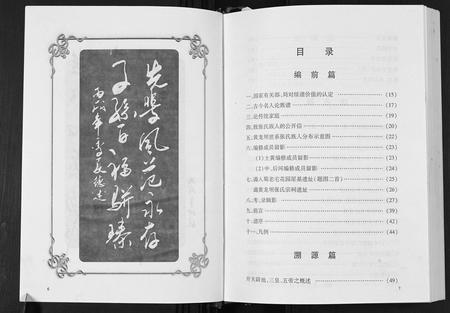 先贤风范永存
子孙百福骈臻
6
目录
编前篇
一、国家有关部、局对续谱价值的认定 (15)
二、古今名人论族谱 (17)
三、论传统家庭 (21)
四、致张氏族人的公开信 (20)
五、黄龙明世系张氏族人分布示意图 (22)
六、编修成员留影
(1)土黄编修成员留影 (23)
(2)中、后河编修成员留影 (24)
七、满人简老宅花园屋基遗址(题图二首) (25)
满黄龙明张氏宗祠遗址 (26)
八、考、录撷影 (27)
九、前言 (39)
十、谱序 (42)
十一、凡例 (44)
溯源篇
开天辟地、三皇、五帝之概述 (49)
7